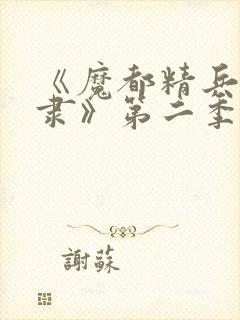 《魔都精兵
隶》第二季
謝蘇